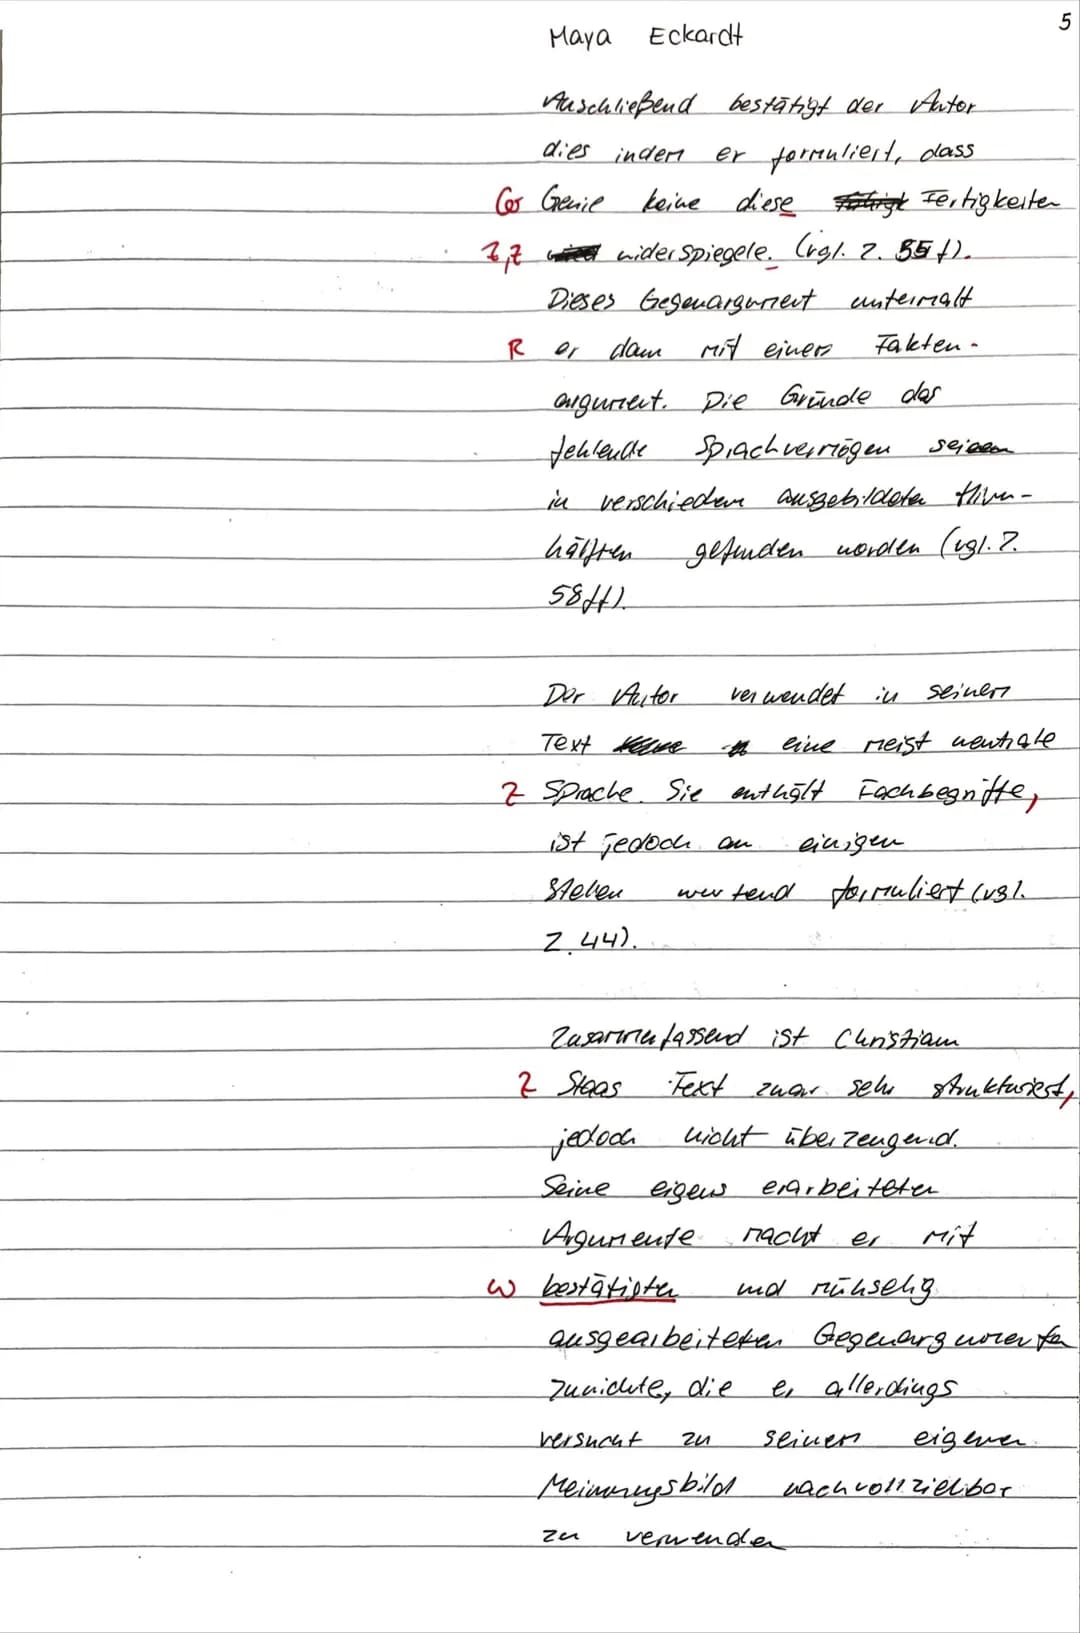 Maya Eckardt 5
Anschließend bestätigt der Autor
dies indem er formuliert, dass
Gr Genie keine diese Fertigkeiten
Z,Z widerspiegele. (vgl. Z. 55 f).
Dieses Gegenargument untermalt
R er dann mit einem Fakten-
argument. Die Gründe das
fehlende Sprachvermögen seien
in verschieden ausgebildeten Hirn-
hälften gefunden worden (vgl. Z.
58ff).
Der Autor verwendet in seinem
Text eine meist neutrale
Z Sprache. Sie enthält Fachbegriffe,
ist jedoch an einigen
Stellen wertend formuliert (vgl.
Z. 44).
Zusammenfassend ist Christian
Z Staas Text zwar sehr strukturiert,
jedoch nicht überzeugend.
Seine eigens erarbeiteten
Argumente macht er mit
W bestätigten und mühselig
ausgearbeiteten Gegenargumenten
zunichte, die er allerdings
versucht zu seinem eigenen
Meinungsbild nachvollziehbar
zu verwenden